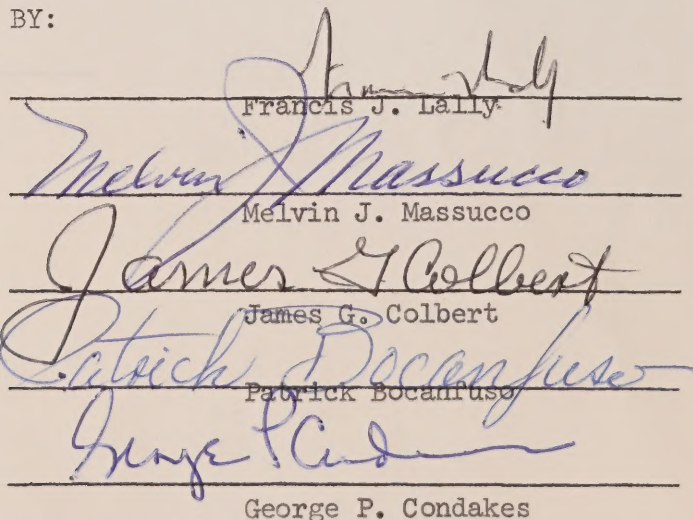 BY:
Francis J. Lally
Melvin J Massucco
Melvin J. Massucco
James G Colbert
James G. Colbert
Patrick Bocanfuso
Patrick Bocanfuso
George P. Condakes